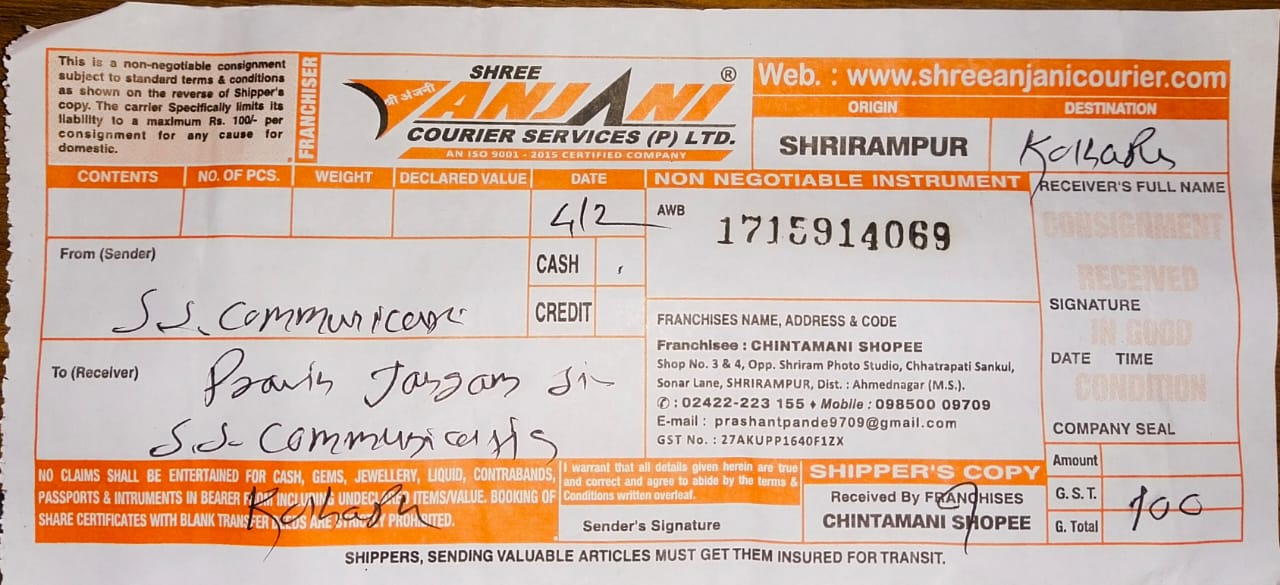 This is a non-negotiable consignment
subject to standard terms & conditions
as shown on the reverse of Shipper's
copy. The carrier Specifically limits its
liability to a maximum Rs. 100/- per
consignment for any cause for
domestic.
FRANCHISER
श्री अंजनी
SHREE
ANJANI ®
COURIER SERVICES (P) LTD.
AN ISO 9001 - 2015 CERTIFIED COMPANY
Web. : www.shreeanjanicourier.com
ORIGIN DESTINATION
SHRIRAMPUR
CONTENTS NO. OF PCS. WEIGHT DECLARED VALUE DATE
4/2
NON NEGOTIABLE INSTRUMENT
AWB 1715914069
From (Sender)
S.S. Communication
CASH
CREDIT
To (Receiver)
Pravin Jangam Sir
S.S. Communication
FRANCHISES NAME, ADDRESS & CODE
Franchisee : CHINTAMANI SHOPEE
Shop No. 3 & 4, Opp. Shriram Photo Studio, Chhatrapati Sankul,
Sonar Lane, SHRIRAMPUR, Dist. : Ahmednagar (M.S.).
✆ : 02422-223 155 ♦ Mobile : 098500 09709
E-mail : prashantpande9709@gmail.com
GST No. : 27AKUPP1640F1ZX
RECEIVER'S FULL NAME
CONSIGNMENT
RECEIVED
SIGNATURE
IN GOOD
DATE TIME
CONDITION
COMPANY SEAL
NO CLAIMS SHALL BE ENTERTAINED FOR CASH, GEMS, JEWELLERY, LIQUID, CONTRABANDS,
PASSPORTS & INTRUMENTS IN BEARER INCLUDING UNDECLARED ITEMS/VALUE. BOOKING OF
SHARE CERTIFICATES WITH BLANK TRANSFER DEEDS ARE STRICTLY PROHIBITED.
I warrant that all details given herein are true
and correct and agree to abide by the terms &
Conditions written overleaf.
Sender's Signature
SHIPPER'S COPY
Received By FRANCHISES
CHINTAMANI SHOPEE
Amount
G. S. T.
G. Total 100
SHIPPERS, SENDING VALUABLE ARTICLES MUST GET THEM INSURED FOR TRANSIT.